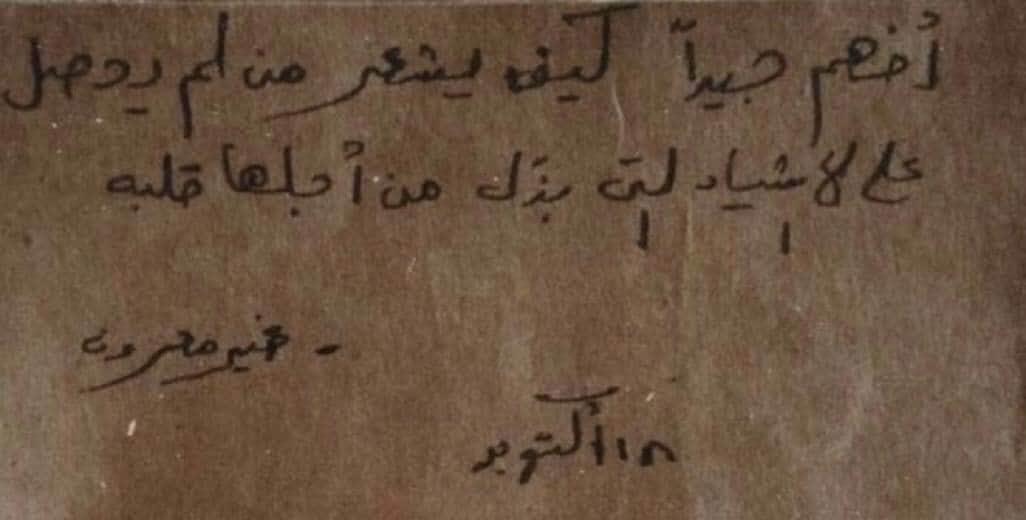 أفهم جيداً كيف يشعر من لم يوصل
على الأشياء التي بذل من أجلها قلبه
- غير معروف
١٨ أكتوبر